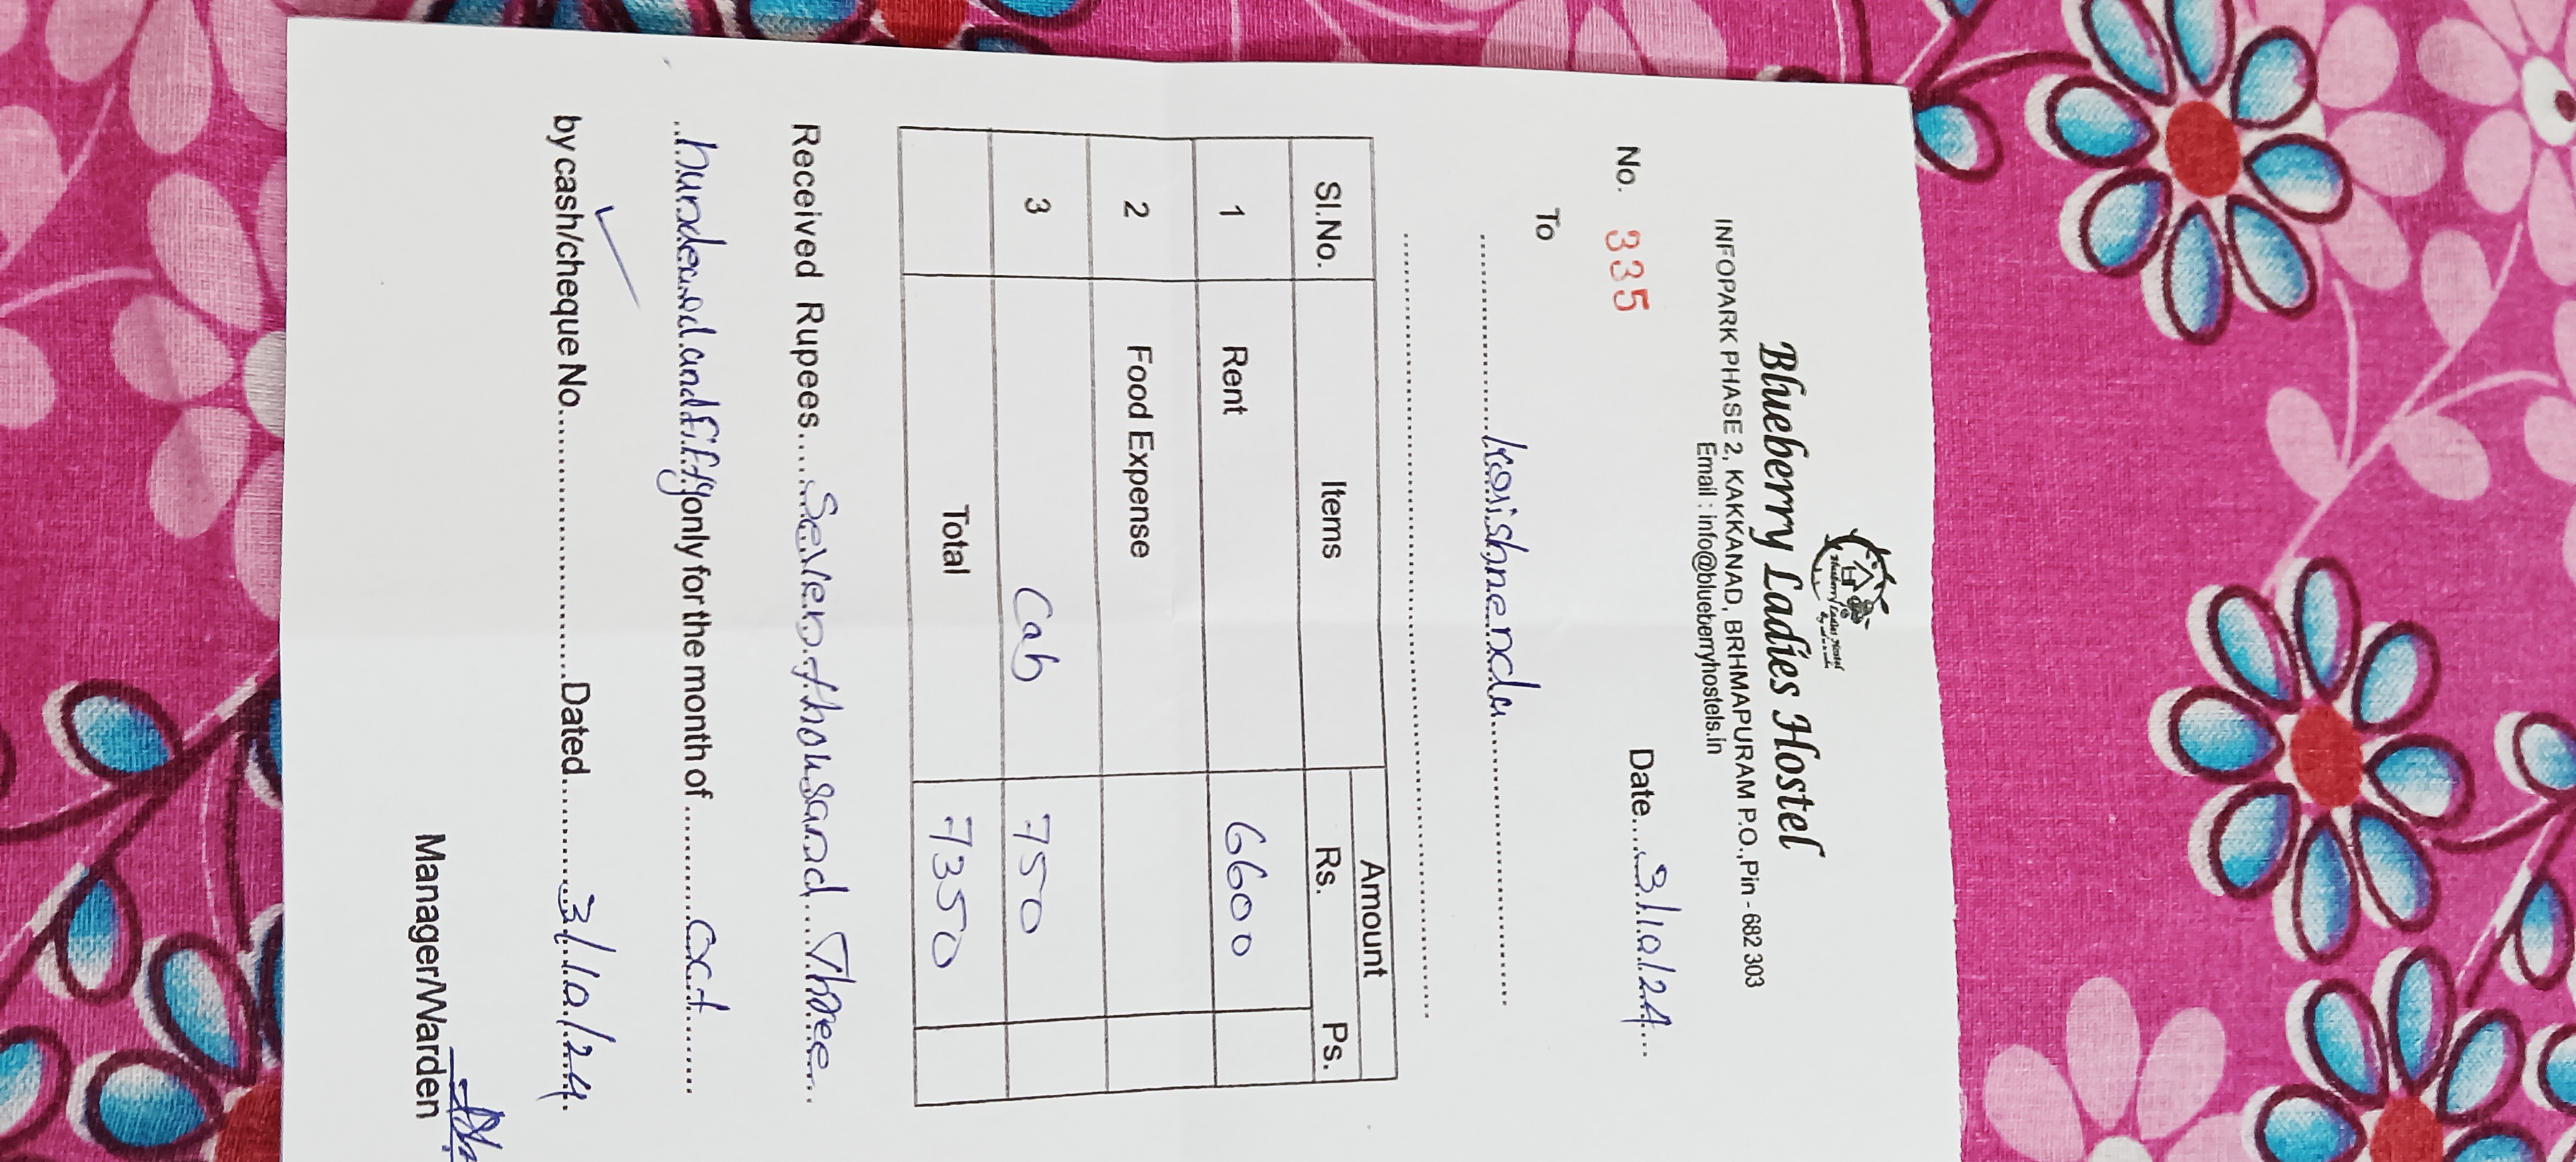 Blueberry Ladies Hostel
INFOPARK PHASE 2, KAKKANAD, BRHMAPURAM P.O.,Pin - 682 303
Email : info@blueberryhostels.in
No. 335 Date...3/10/24...
To
krishnendu
Sl.No. Items Amount
Rs. Ps.
1 Rent 6600
2 Food Expense
3 Cab 750
Total 7350
Received Rupees.....Seven thousand Three
hundered and fifty only for the month of ..........Oct..........
by cash/cheque No..............................Dated..............3/10/24.
Manager/Warden